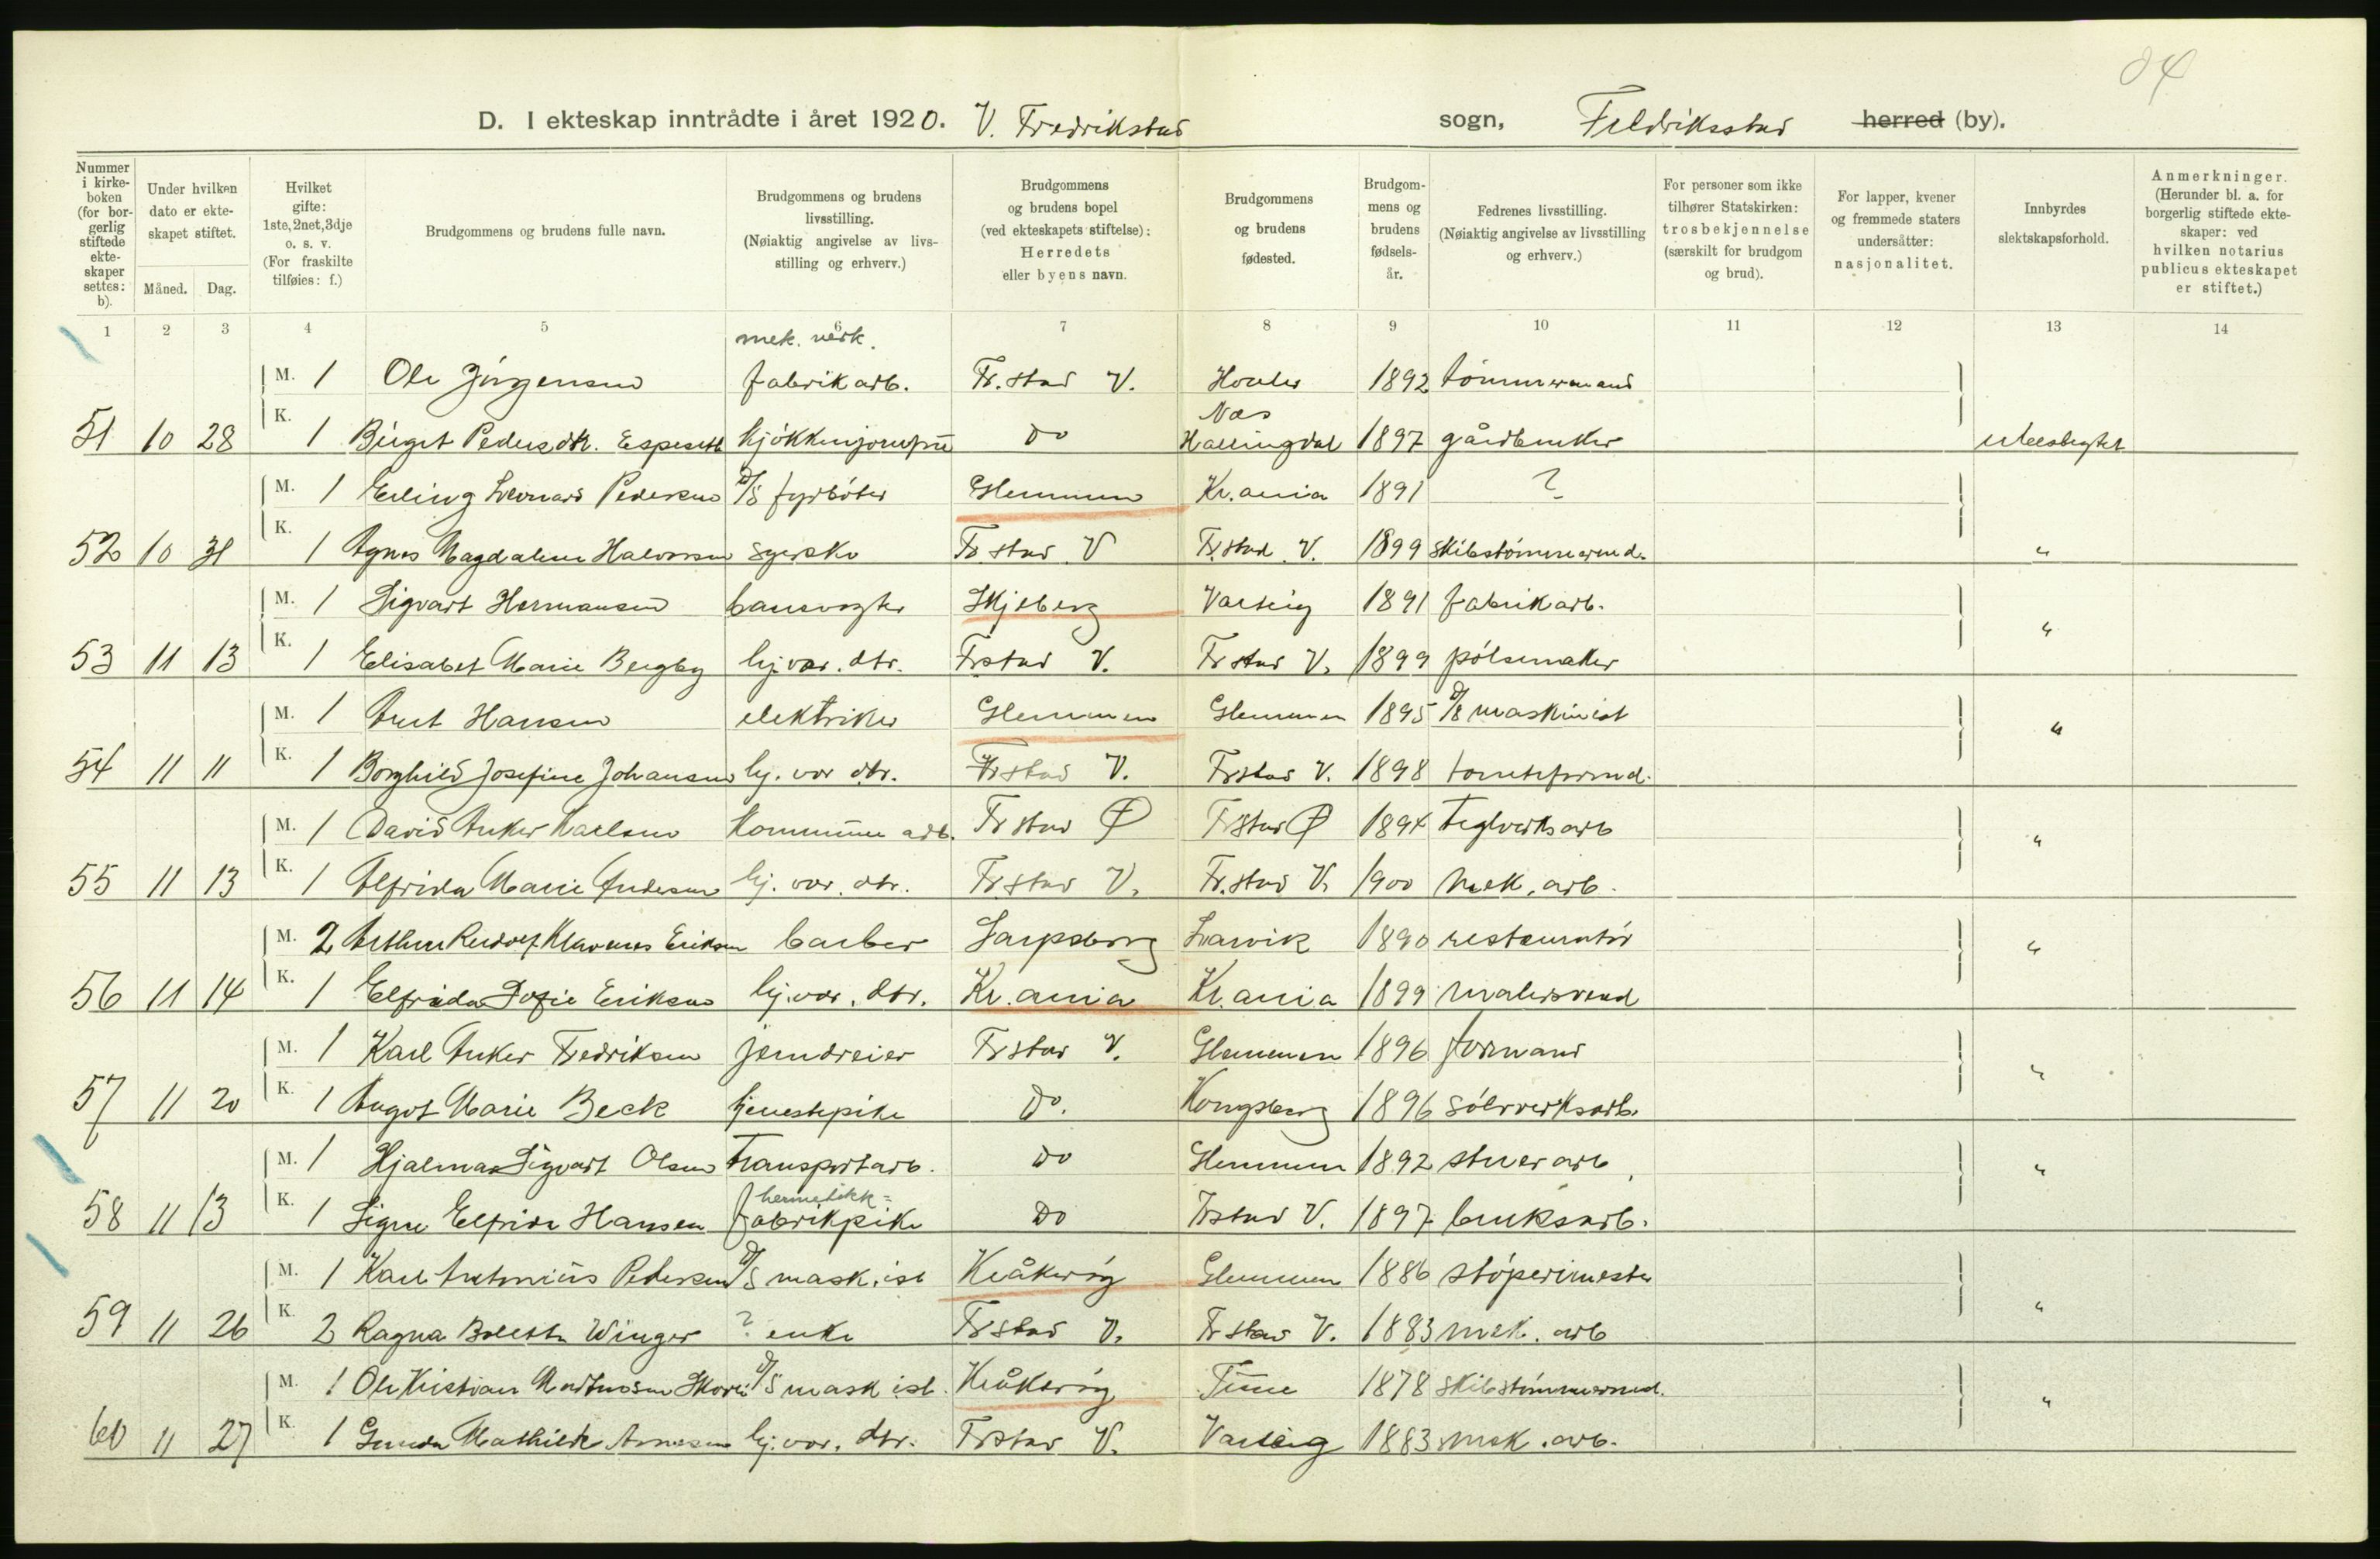 84
D. I ekteskap inntrådte i året 1920. V. Fredrikstad sogn, Fredriksstad herred (by).
Nummer i kirke-boken (for bor-gerlig stiftede ekte-skaper settes: b).
Under hvilken dato er ekte-skapet stiftet.
Måned. Dag.
Hvilket gifte: 1ste, 2net, 3dje o. s. v. (For fraskilte tilføies: f.)
Brudgommens og brudens fulle navn.
Brudgommens og brudens livsstilling. (Nøiaktig angivelse av livs-stilling og erhverv.)
Brudgommens og brudens bopel (ved ekteskapets stiftelse): Herredets eller byens navn.
Brudgommens og brudens fødested.
Brudgom-mens og brudens fødsels-år.
Fedrenes livsstilling. (Nøiaktig angivelse av livsstilling og erhverv.)
For personer som ikke tilhører Statskirken: trosbekjennelse (særskilt for brudgom og brud).
For lapper, kvener og fremmede staters undersåtter: nasjonalitet.
Innbyrdes slektskapsforhold.
Anmerkninger. (Herunder bl. a. for borgerlig stiftede ekte-skaper: ved hvilken notarius publicus ekteskapet er stiftet.)
1 2 3 4 5 6 7 8 9 10 11 12 13 14
mek. verk.
M. 1 Ole Jörgensen fabrikarb. Fr.stad V. 1892 tömmermand
Næs
51 10 28 K. 1 Birget Pedersdtr. Espeseth do Hallingdal 1897 gårdbruker ubeslegtet
M. 1 Erling Leonard Pedersen D/S fyrböter Glemmen Kr.ania 1891 ?
52 10 31 K. 1 Agnes Magdalene Halvorsen syerske Fr.stad V Fr.stad V. 1899 skibstömmermd. "
M. 1 Sigvart Hermansen banevogter Skjeberg Varteig 1891 fabrikarb.
53 11 13 K. 1 Elisabet Marie Bergby hj.vær. dtr. Frstad V. Frstad V. 1899 pölsemaker "
M. 1 Arnt Hansen elektriker Glemmen Glemmen 1895 D/S maskinist
54 11 11 K. 1 Borghild Josefine Johansen hj. vær dtr. Frstad V. Frstad V. 1898 tomteformd. "
M. 1 David Anker Karlsen Kommune arb. Frstad Ø Frstad Ø 1894 Teglverksarb
55 11 13 K. 1 Alfrida Marie Andersen hj. vær. dtr. Frstad V. Fr.stad V. 1900 Mek. arb. "
M. 2 Arthur Rudolf Klavenes Eriksen barber Sarpsborg Larvik 1890 restauratör
56 11 14 K. 1 Elfrida Sofie Eriksen hj.vær. dtr. Kr.ania Kr.ania 1899 Malersvend "
M. 1 Karl Anker Fredriksen jerndreier Frstad V. Glemmen 1896 formand
57 11 20 K. 1 Aagot Marie Beck tjenestepike Do. Kongsberg 1896 sölvverksarb. "
M. 1 Hjalmar Sigvart Olsen Transportarb. do Glemmen 1892 stuerarb
hermetikk=
58 11 13 K. 1 Signe Elfrida Hansen fabrikpike do Frstad V. 1897 bruksarb. "
M. 1 Karl Antonius Pedersen D/S mask.ist Kråkeröy Glemmen 1886 stöperimester
59 11 26 K. 2 Ragna Bolette Winger ? enke Frstad V. Fr stad V. 1883 mek. arb "
M. 1 Ole Kristian D/S mask ist. Kråkeröy Tune 1878 skibstömmermd.
60 11 27 K. 1 Gunda Mathilde Arnesen hj.vær. dtr. Frstad V. Varteig 1883 mek. arb. "